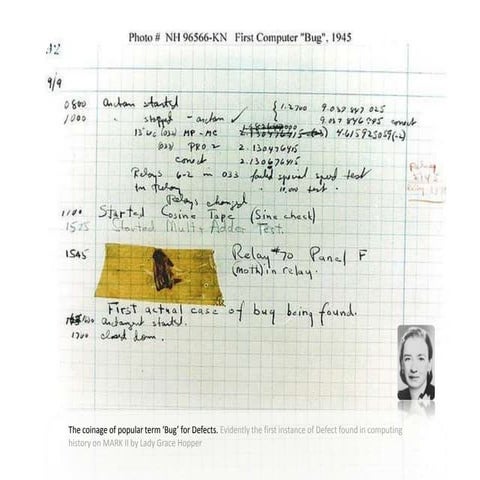 Photo # NH 96566-KN First Computer "Bug", 1945
92
9/9
0800 Antan started
1000 " stopped - antan ✓ { 1.2700 9.037 847 025
9.037 846 995 correct
13"uc (032) MP - MC 4.615925059(-2)
(033) PRO 2 2.130476415
correct 2.130676415
Relays 6-2 in 033 failed special speed test
in relay " 11.000 test.
Relays changed
1100 Started Cosine Tape (Sine check)
1525 Started Multi Adder Test.
1545 Relay #70 Panel F
(moth) in relay.
First actual case of bug being found.
antangent started.
1700 closed down.
The coinage of popular term 'Bug' for Defects. Evidently the first instance of Defect found in computing
history on MARK II by Lady Grace Hopper